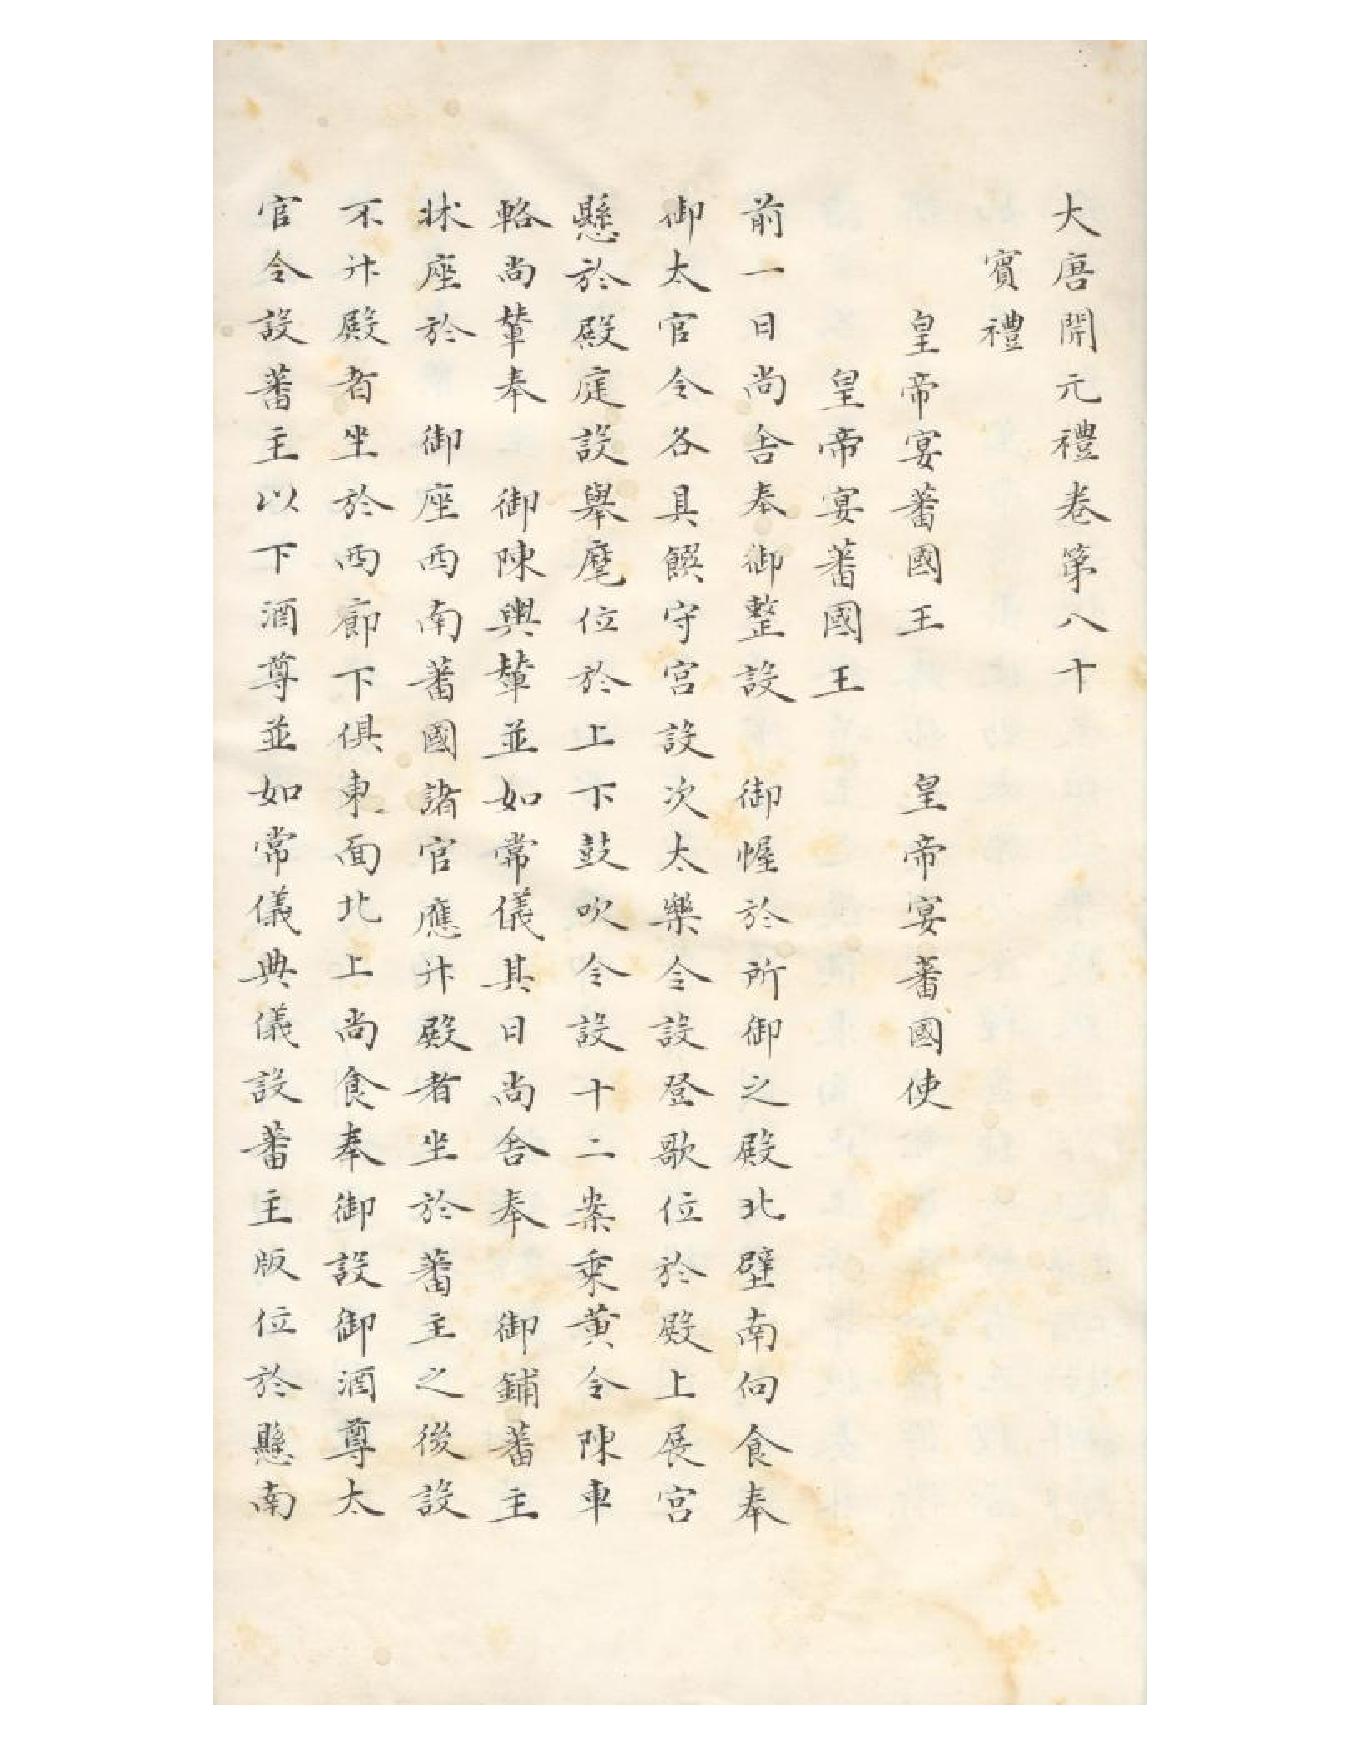 大唐開元禮卷第八十
賓禮
皇帝宴蕃國王　皇帝宴蕃國使
皇帝宴蕃國王
前一日尚舍奉御整設　御幄於所御之殿北壁南向食奉
御太官令各具饌守宮設次太樂令設登歌位於殿上展宮
懸於殿庭設舉麾位於上下鼓吹令設十二案乘黄令陳車
輅尚輦奉　御陳輿輦並如常儀其日尚舍奉　御鋪蕃主
牀座於　御座西南蕃國諸官應升殿者坐於蕃主之後設
不升殿者坐於西廊下俱東面北上尚食奉御設御酒尊太
官令設蕃主以下酒尊並如常儀典儀設蕃主版位於懸南